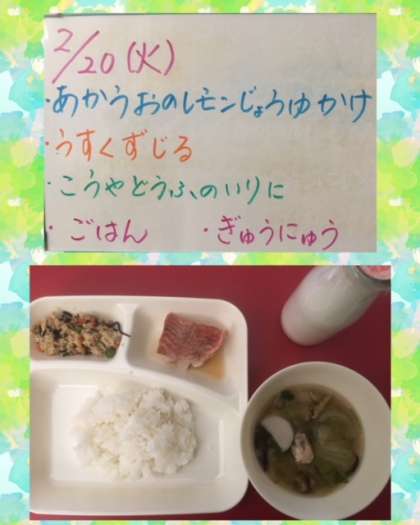 2/20(火)
・あかうおのレモンじょうゆかけ
・うすくずじる
・こうやどうふのいりに
・ごはん ・ぎゅうにゅう